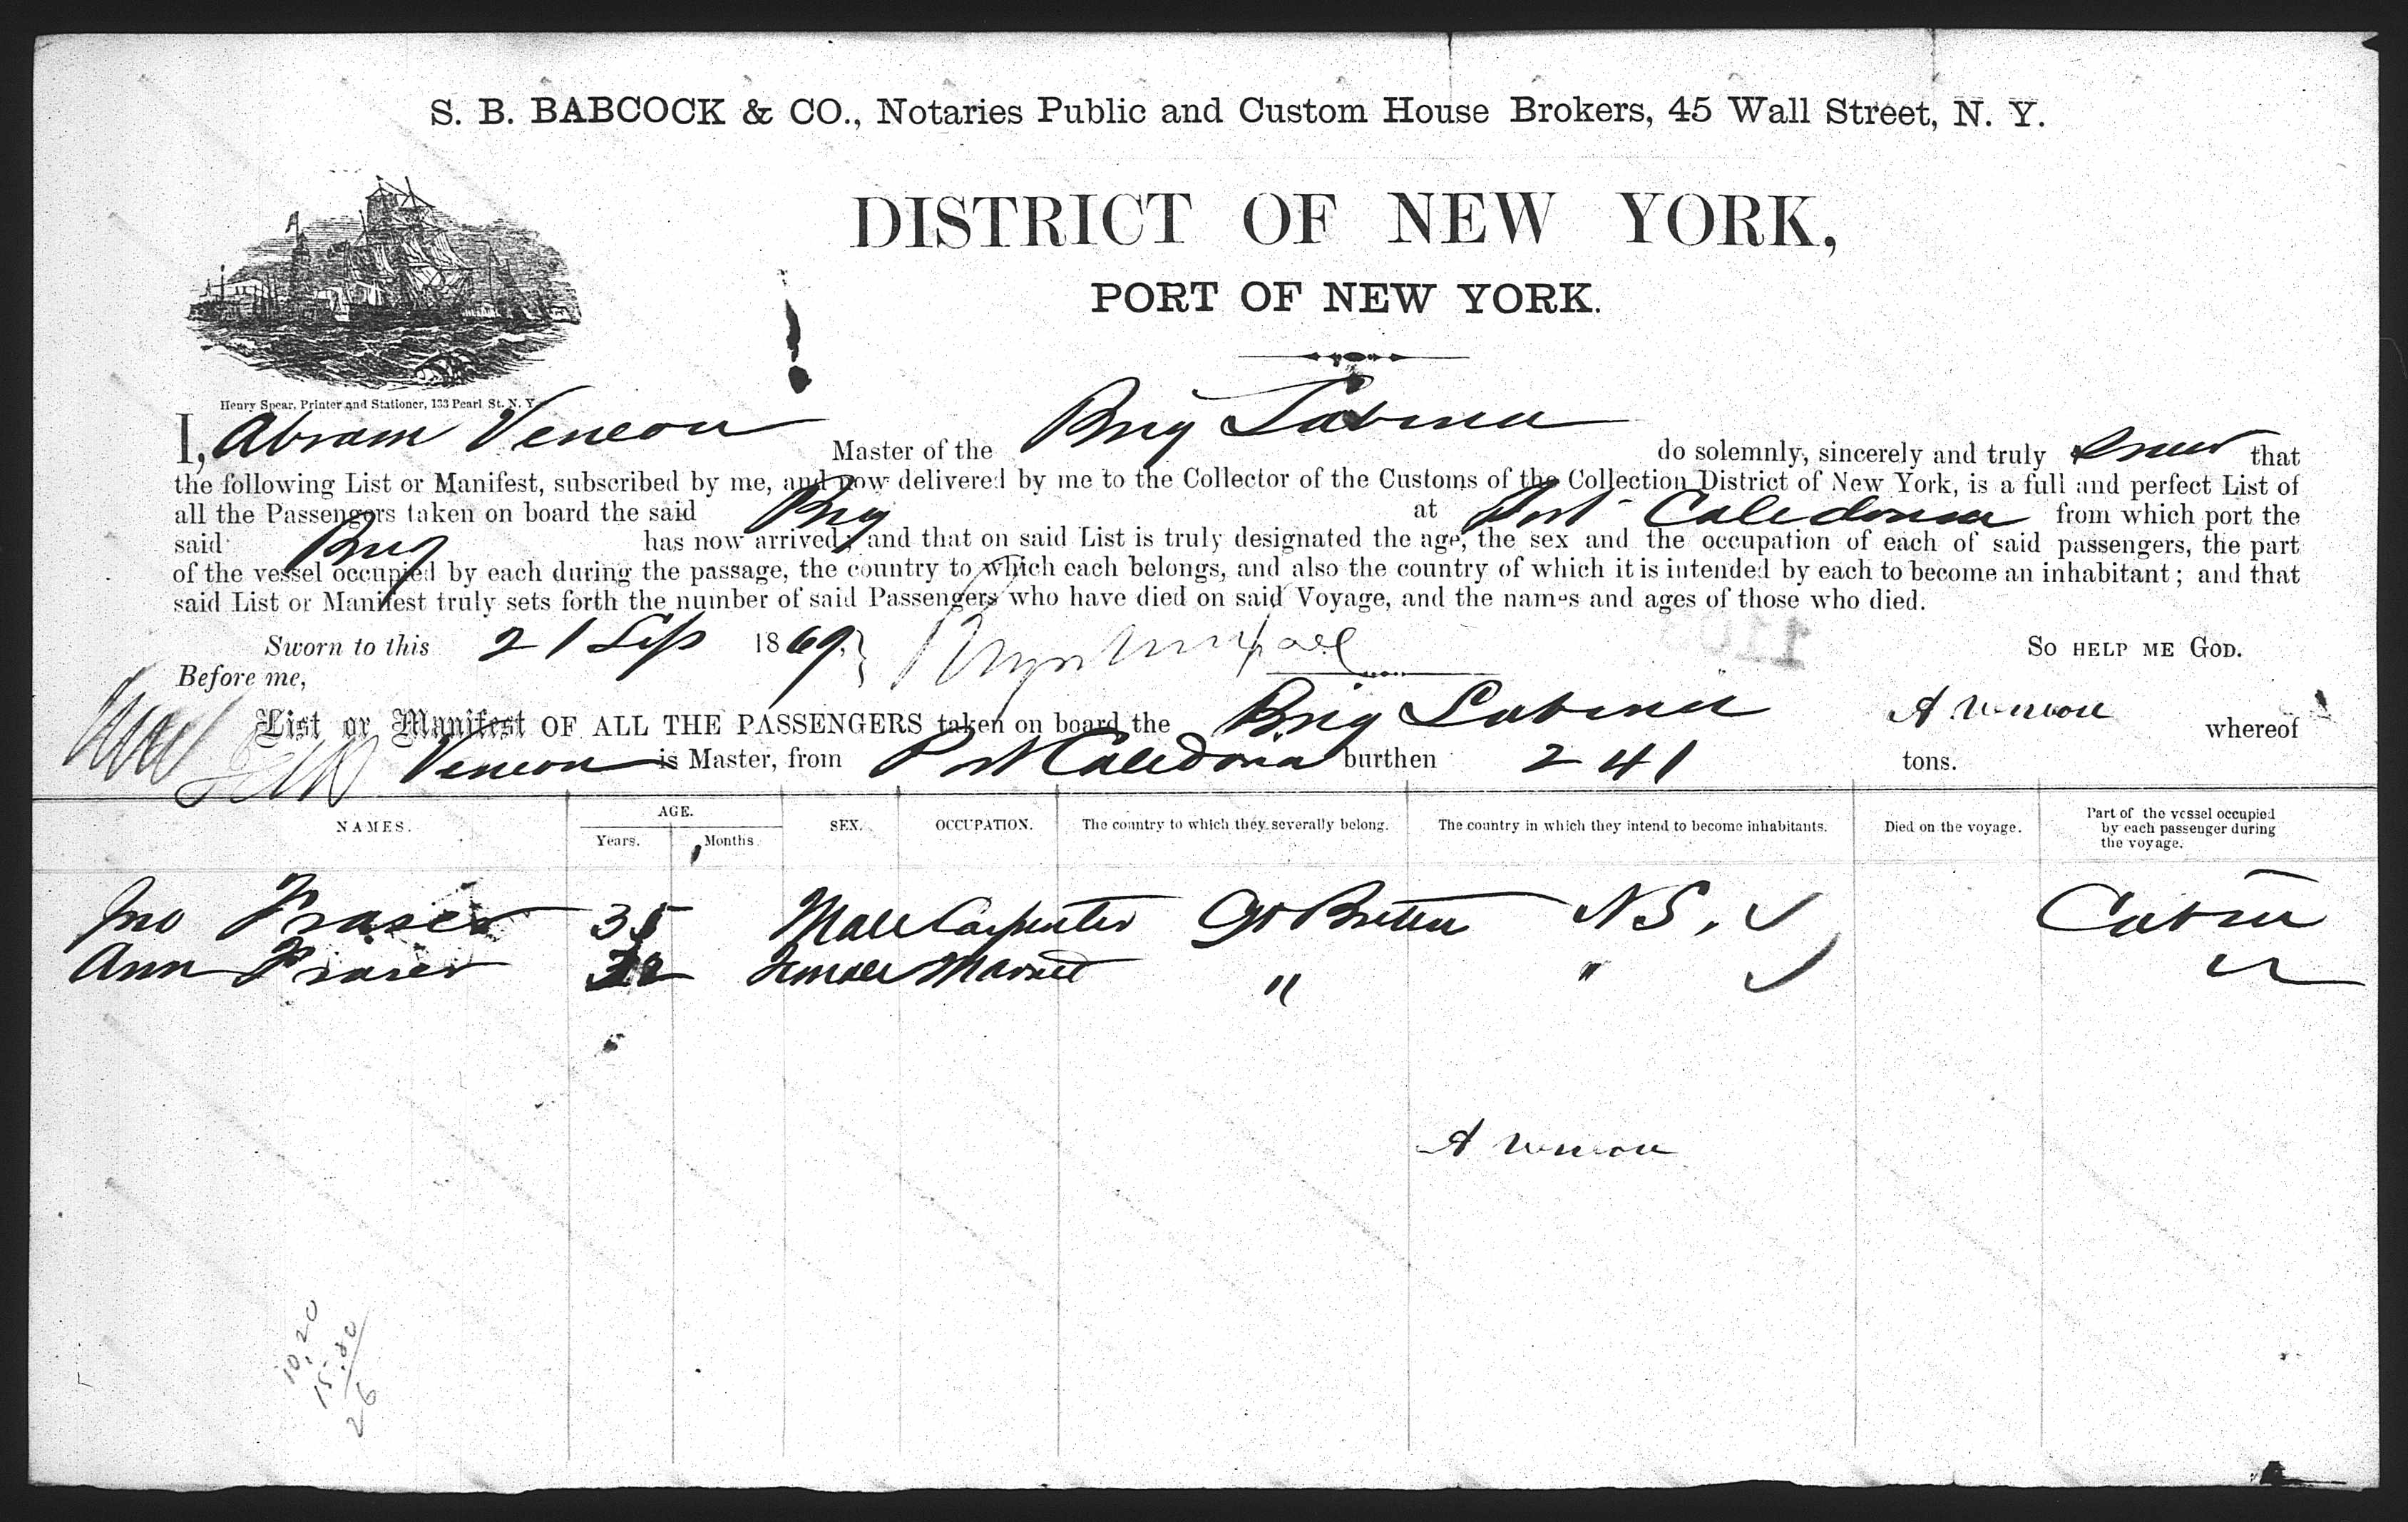 S. B. BABCOCK & CO., Notaries Public and Custom House Brokers, 45 Wall Street, N. Y.
DISTRICT OF NEW YORK,
PORT OF NEW YORK.
Henry Spear, Printer and Stationer, 133 Pearl St. N. Y.
I, Abram Veneou Master of the Brig Labinia do solemnly, sincerely and truly swear that
the following List or Manifest, subscribed by me, and now delivered by me to the Collector of the Customs of the Collection District of New York, is a full and perfect List of
all the Passengers taken on board the said Brig at Port Caledonia from which port the
said Brig has now arrived; and that on said List is truly designated the age, the sex and the occupation of each of said passengers, the part
of the vessel occupied by each during the passage, the country to which each belongs, and also the country of which it is intended by each to become an inhabitant; and that
said List or Manifest truly sets forth the number of said Passengers who have died on said Voyage, and the names and ages of those who died.
Sworn to this 21 Sep 1869. SO HELP ME GOD.
Before me,
List or Manifest OF ALL THE PASSENGERS taken on board the Brig whereof
is Master, from Port Caledonia burthen 241 tons.
NAMES. AGE. Years. Months SEX. OCCUPATION. The country to which they severally belong. The country in which they intend to become inhabitants. Died on the voyage. Part of the vessel occupied by each passenger during the voyage.
Jno Fraser 35 Male Carpenter Gt Britain N S. Cabin
Ann Fraser Female Married " "
10.20
15.80
26